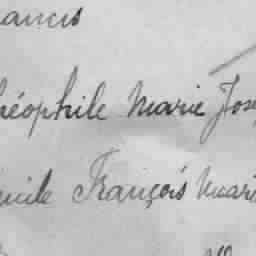 ancis
héophile Marie Jos
mile François Mari